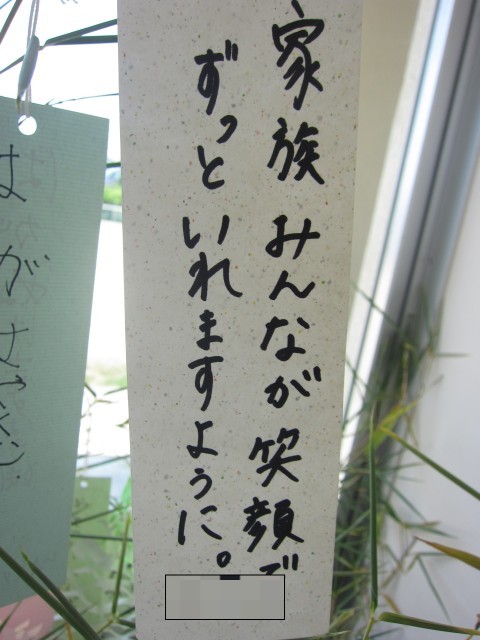 家族みんなが笑顔で
ずっといれますように。